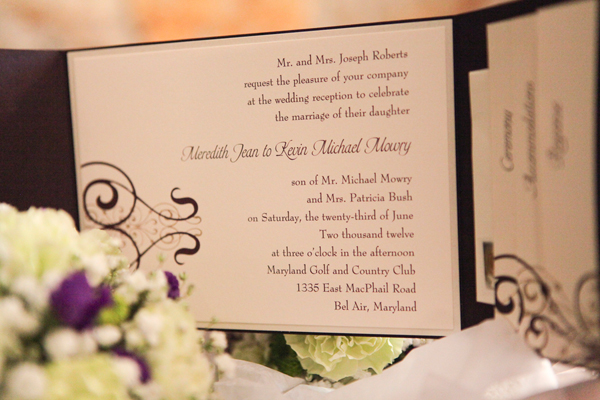 Mr. and Mrs. Joseph Roberts
request the pleasure of your company
at the wedding reception to celebrate
the marriage of their daughter
Meredith Jean to Kevin Michael Mowry
son of Mr. Michael Mowry
and Mrs. Patricia Bush
on Saturday, the twenty-third of June
Two thousand twelve
at three o'clock in the afternoon
Maryland Golf and Country Club
1335 East MacPhail Road
Bel Air, Maryland
Ceremony
Accommodations